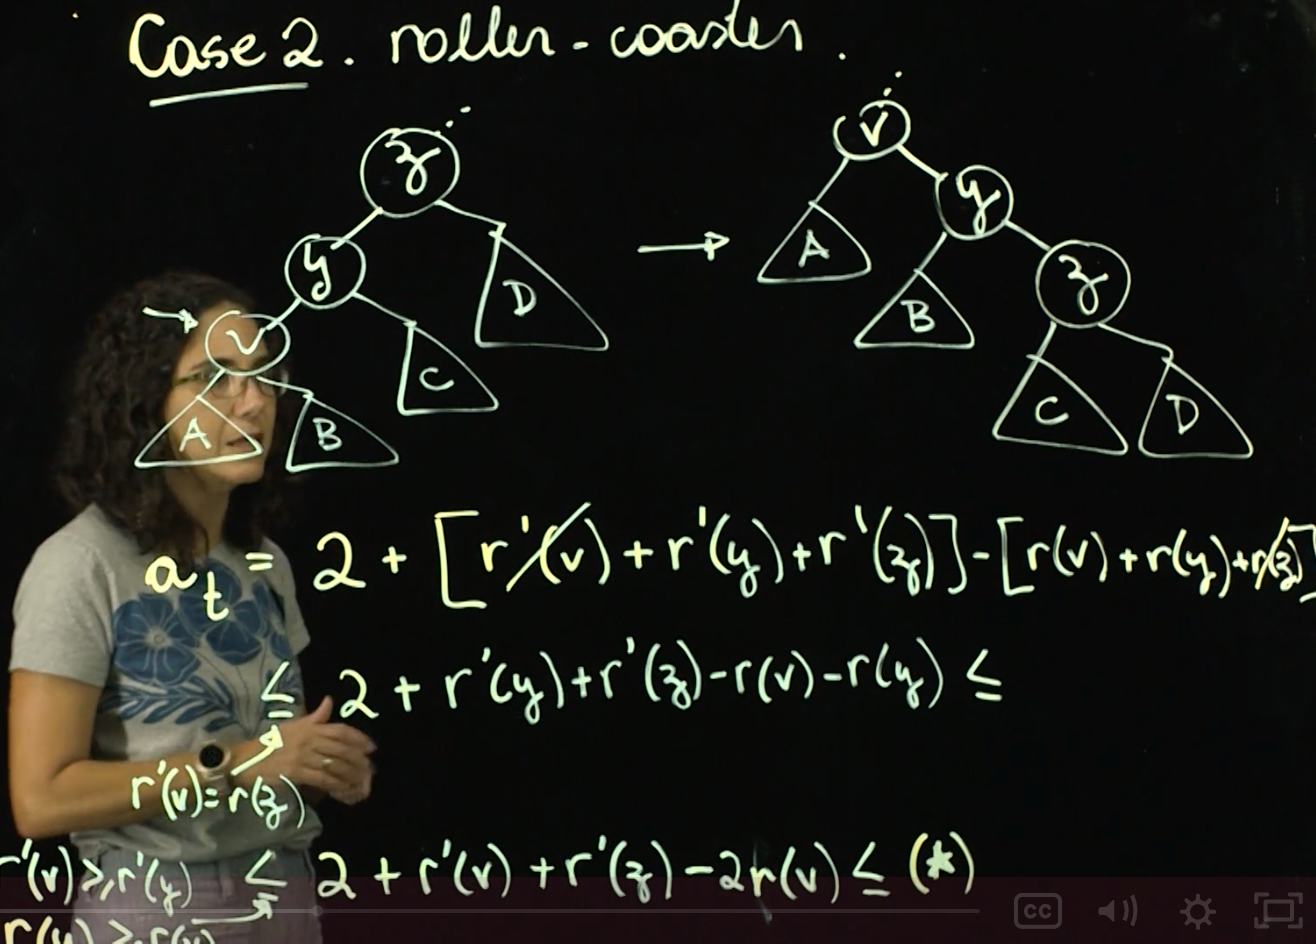 Case 2. roller-coaster.
z
y
D
v
C
A
B
→
v
A
y
B
z
C
D
a_t = 2 + [r'(v) + r'(y) + r'(z)] - [r(v) + r(y) + r(z)]
≤ 2 + r'(y) + r'(z) - r(v) - r(y) ≤
r'(v) = r(z)
r'(v) ≥ r'(y) ≤ 2 + r'(v) + r'(z) - 2r(v) ≤ (*)
r(y) ≥ r(v)
CC